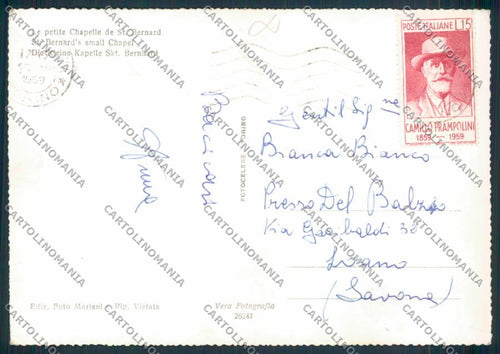 petite Chapelle de St. Bernard
St. Bernard's small Chapel
Die kleine Kapelle Skt. Bernhard
1959
POSTE ITALIANE L15
CAMILLO PRAMPOLINI
1859 — 1959
Baci cari
FOTOCELERE TORINO
Gentil Sig.ne
Bianca Bianco
Presso Del Balzo
Via Garibaldi 32
(Savona)
Ediz. Foto Mariani - Rip. Vietata
Vera Fotografia
26241
CARTOLINOMANIA